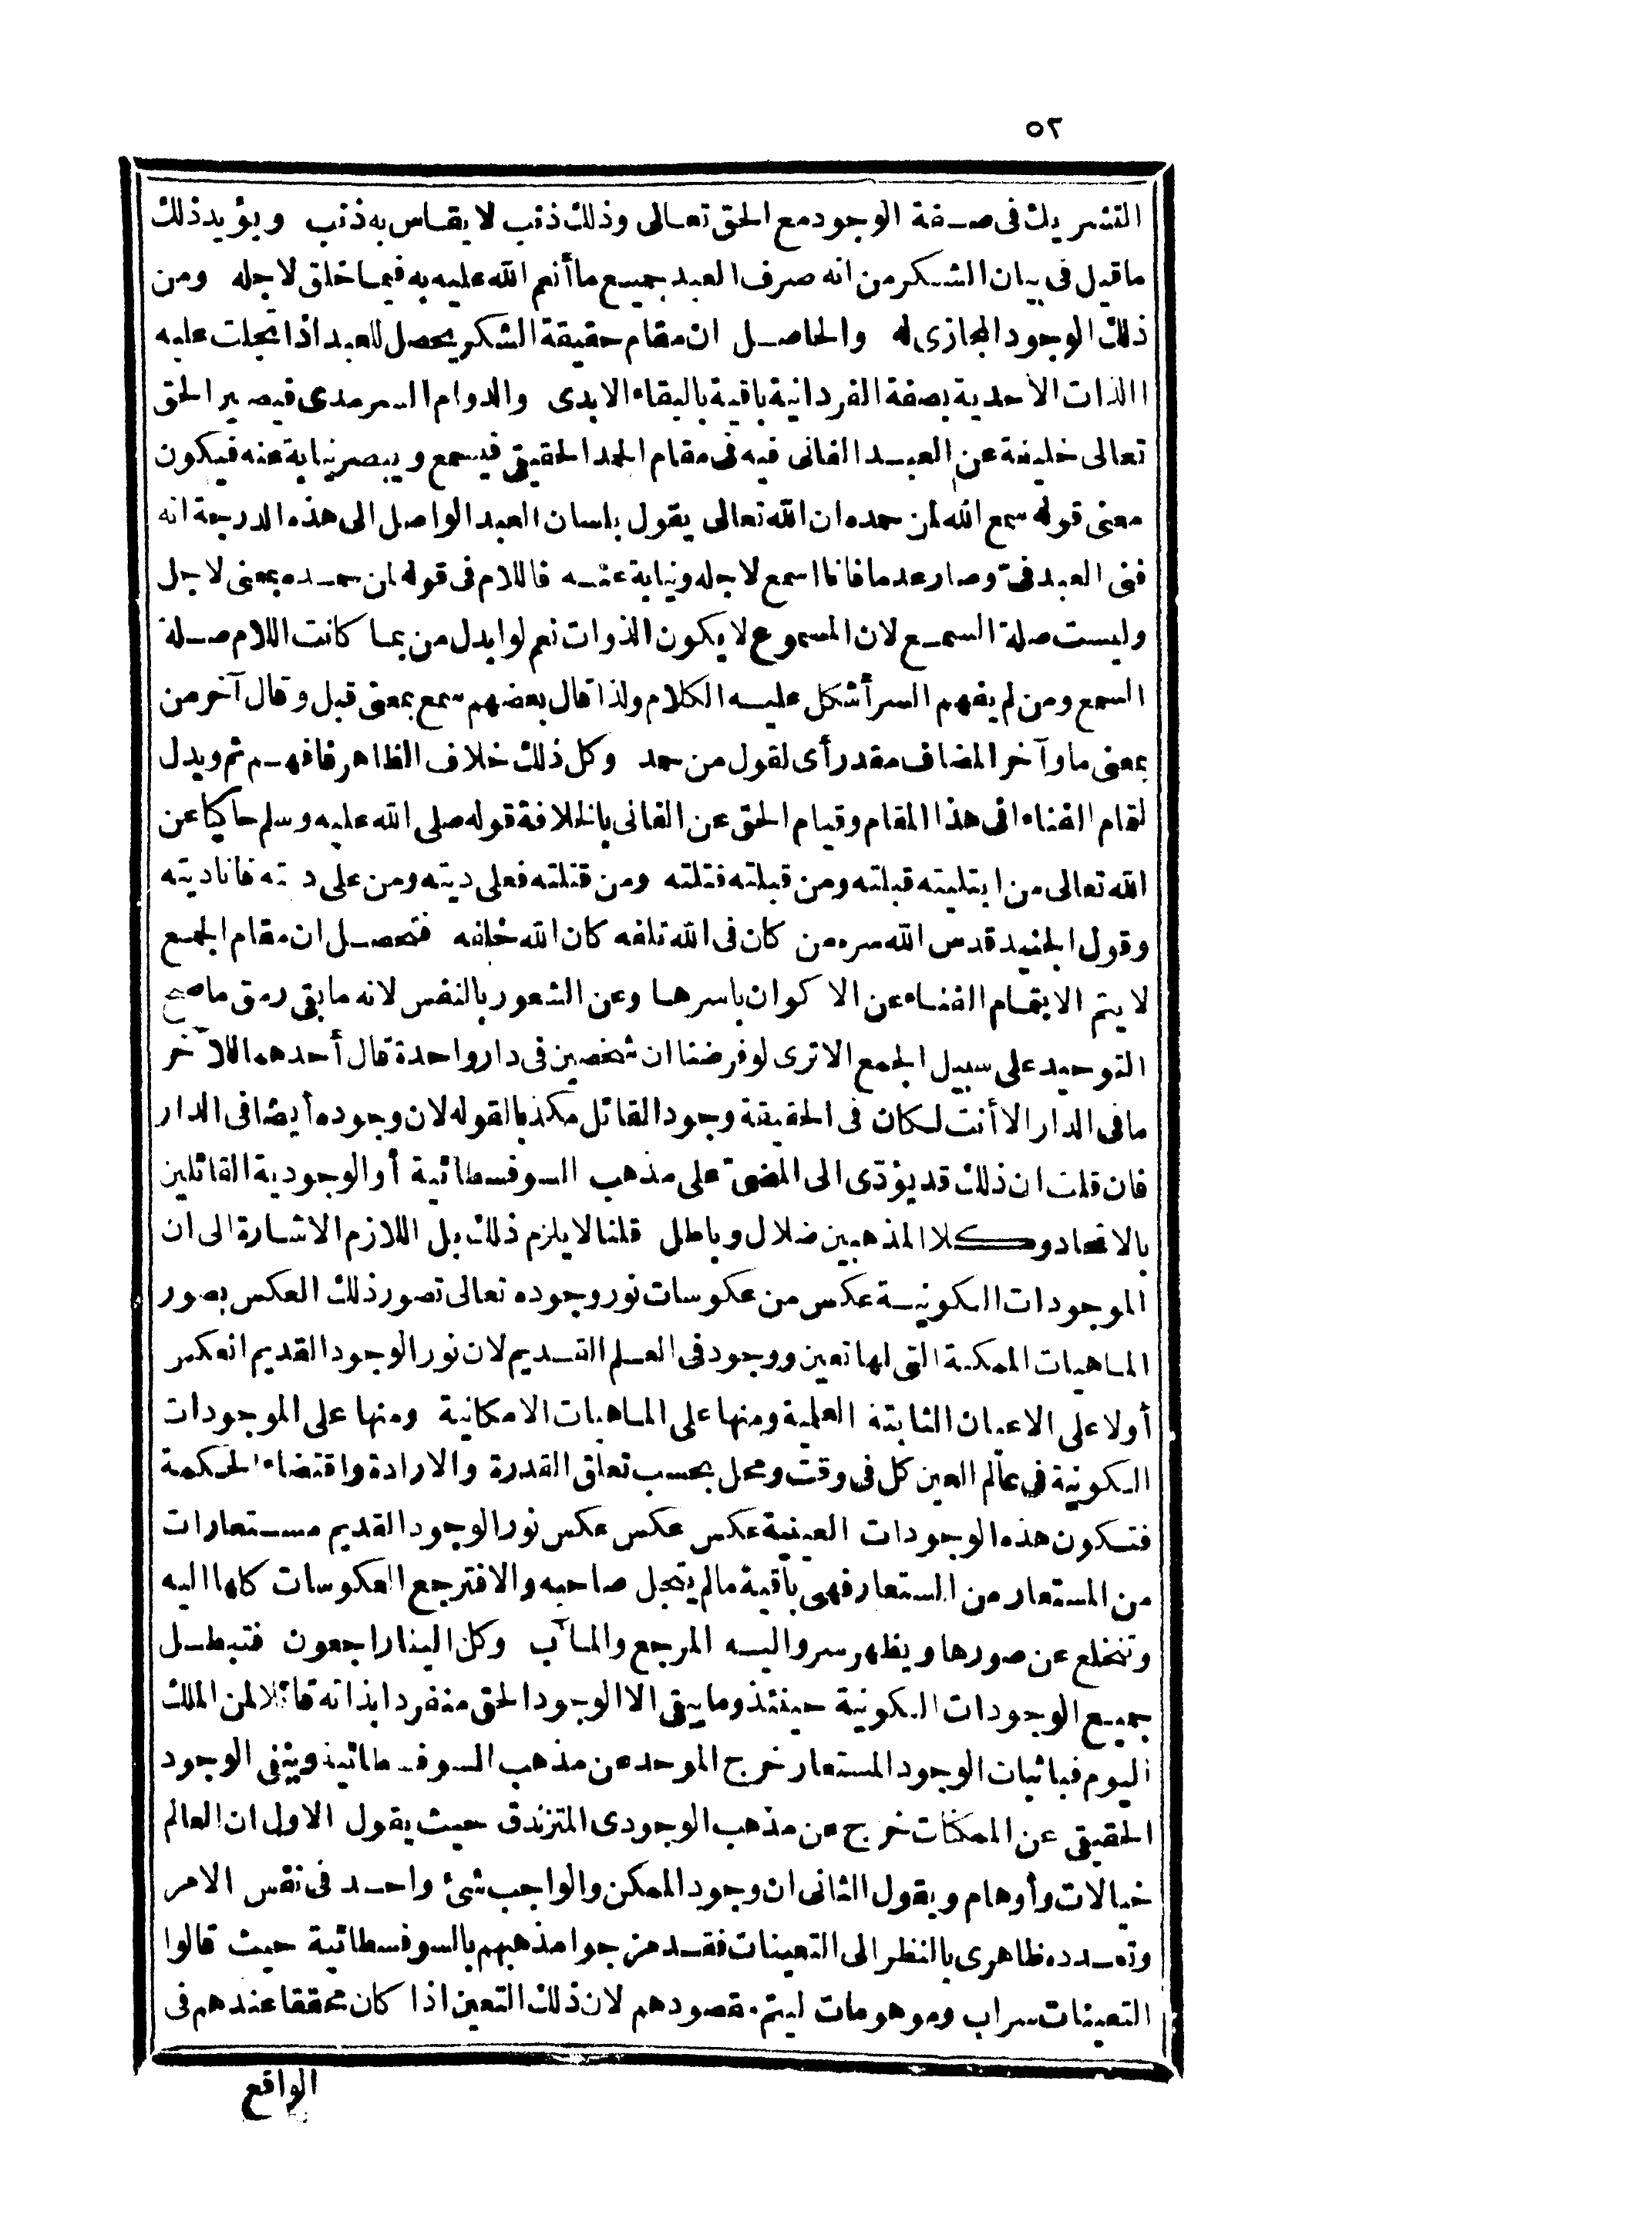 ٥٢
التشريك فى صفة الوجود مع الحق تعالى وذلك ذنب لا يقاس به ذنب ويؤيد ذلك
ما قيل فى بيان الشكر من انه صرف العبد جميع ما أنعم الله عليه به فيما خلق لاجله ومن
ذلك الوجود المجازى له والحاصل ان مقام حقيقة الشكر يحصل للعبد اذا تجلت عليه
االذات الاحدية بصفة الفردانية باقية بالبقاء الابدى والدوام السرمدى فيصير الحق
تعالى خليفة عن العبد الفانى فيه فى مقام الحمد الحقيقى فيسمع ويبصر نيابة عنه فيكون
معنى قوله سمع الله لمن حمده ان الله تعالى يقول بلسان العبد الواصل الى هذه الدرجة انه
فنى العبد فىّ وصار عدما فانا اسمع لاجله ونيابة عنه فاللام فى قوله لمن حمده بمعنى لاجل
وليست صلة السمع لان المسموع لا يكون الذوات نعم لو ابدل من بما كانت اللام صلة
السمع ومن لم يفهم السر أشكل عليه الكلام ولذا قال بعضهم سمع بمعنى قبل وقال آخر من
بمعنى ما وآخر المضاف مقدر أى لقول من حمد وكل ذلك خلاف الظاهر فافهم ثم ويدل
لقام الفناء افى هذا المقام وقيام الحق عن الفانى بالخلافة قوله صلى الله عليه وسلم حاكيا عن
الله تعالى من ابتليته قبلته ومن قبلته قتلته ومن قتلته فعلى ديته ومن على ديته فانا ديته
وقول الجنيد قدس الله سره من كان فى الله تلفه كان الله خلفه فتحصل ان مقام الجمع
لا يتم الا بتمام الفناء عن الاكوان باسرها وعن الشعور بالنفس لانه ما بقى رمق ما صح
التوحيد على سبيل الجمع الا ترى لو فرضنا ان شخصين فى دار واحدة قال أحدهما للآخر
ما فى الدار الا أنت لكان فى الحقيقة وجود القائل مكذبا لقوله لان وجوده أيضا فى الدار
فان قلت ان ذلك قد يؤدّى الى المضىّ على مذهب السوفسطائية أو الوجودية القائلين
بالاتحاد وكلا المذهبين ضلال وباطل قلنا لا يلزم ذلك بل اللازم الاشارة الى ان
الموجودات الكونية عكس من عكوسات نور وجوده تعالى تصور ذلك العكس بصور
الماهيات الممكنة التى لها تعين ووجود فى العلم القديم لان نور الوجود القديم انعكس
أولا على الاعيان الثابتة العلمية ومنها على الماهيات الامكانية ومنها على الموجودات
الكونية فى عالم العين كل فى وقت ومحل بحسب تعلق القدرة والارادة واقتضاء الحكمة
فتكون هذه الوجودات العينية عكس عكس عكس نور الوجود القديم مستعارات
من المستعار من المستعار فهى باقية ما لم يتجل صاحبه والا فترجع العكوسات كلها اليه
وتنخلع عن صورها ويظهر سر واليه المرجع والمآب وكل الينا راجعون فتبطل
جميع الوجودات الكونية حينئذ وما يبقى الا الوجود الحق منفردا بذاته قائلا لمن الملك
اليوم فباثبات الوجود المستعار خرج الموحد عن مذهب السوفسطائية وينفى الوجود
الحقيقى عن الممكنات خرج عن مذهب الوجودى المتزندق حيث يقول الاول ان العالم
خيالات وأوهام ويقول الثانى ان وجود الممكن والواجب شئ واحد فى نفس الامر
وتعدده ظاهرى بالنظر الى التعينات فقد مزجوا مذهبهم بالسوفسطائية حيث قالوا
التعينات سراب وموهومات ليتم مقصودهم لان ذلك التعين اذا كان محققا عندهم فى
الواقع